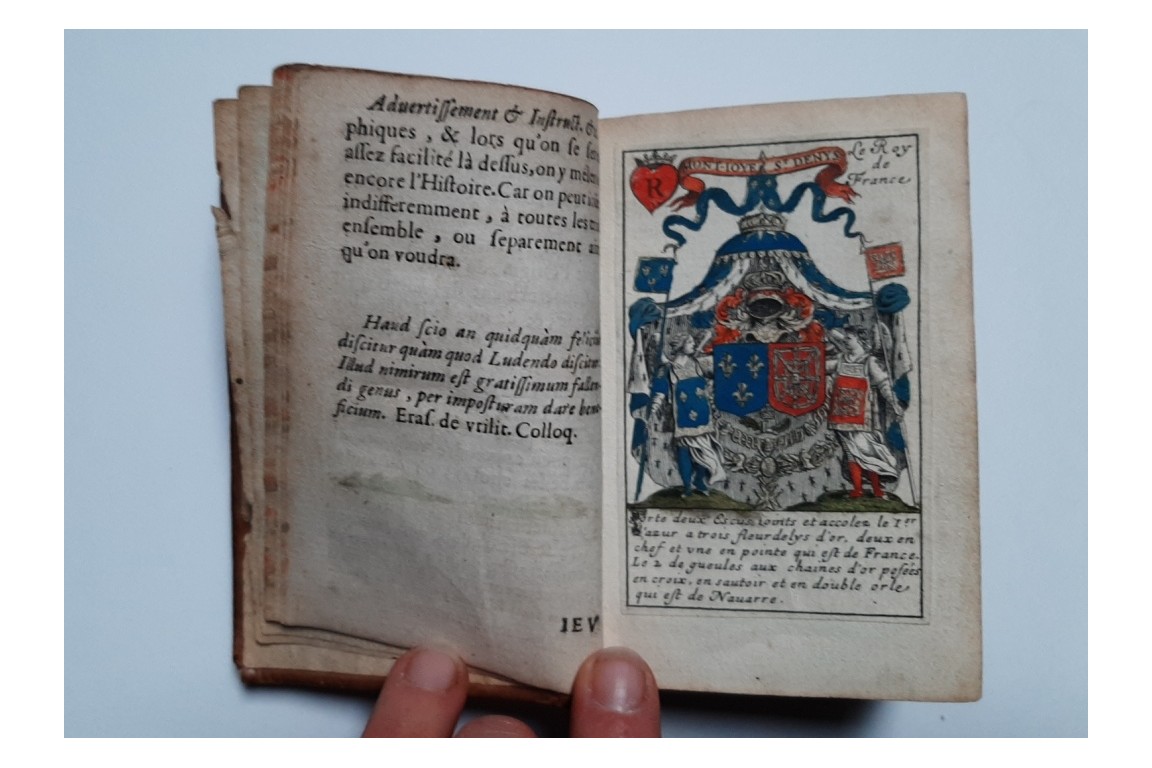 Aduertiſſement & Inſtruct. &
phiques, & lors qu'on ſe ſera
aſſez facilité là deſſus, on y mélera
encore l'Hiſtoire. Car on peut
indifferemment, à toutes les
enſemble, ou ſeparement
qu'on voudra.
Haud ſcio an quidquàm feliciùs
diſcitur quàm quod Ludendo diſcitur.
Illud nimirum eſt gratiſſimum fallen-
di genus, per impoſturam dare bene-
ficium. Eraſ. de vtilit. Colloq.
IEV
R
MONT-IOYE St. DENYS
Le Roy
de
France
Porte deux Escus ioints et accolez le 1er
d'azur a trois fleurdelys d'or, deux en
chef et vne en pointe qui eſt de France.
Le 2 de gueules aux chaines d'or posées
en croix, en sautoir et en double orle
qui eſt de Nauarre.